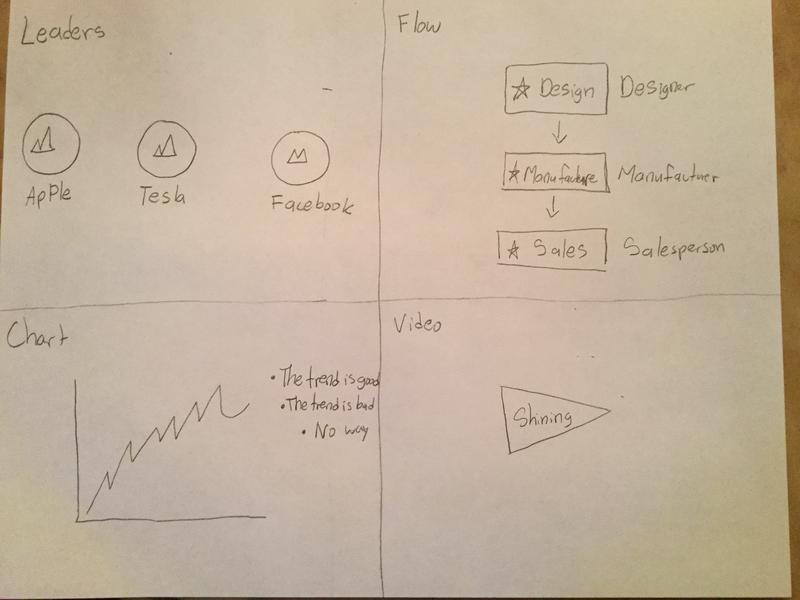 Leaders
Apple
Tesla
Facebook
Flow
Design Designer
Manufacture Manufacturer
Sales Salesperson
Chart
• The trend is good
• The trend is bad
• No way
Video
Shining